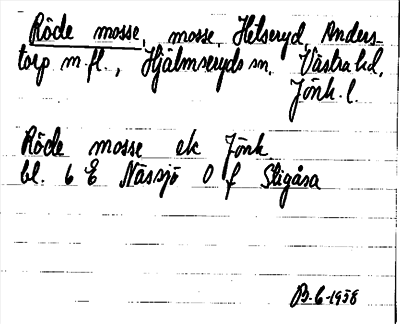 Röde mosse, mosse, Helseryd, Anders-
torp m.fl., Hjälmseryds sn, Västra hd,
Jönk. l.
Röde mosse ek Jönk
bl. 6 E Nässjö 0 f Stigåsa
B.G-1958